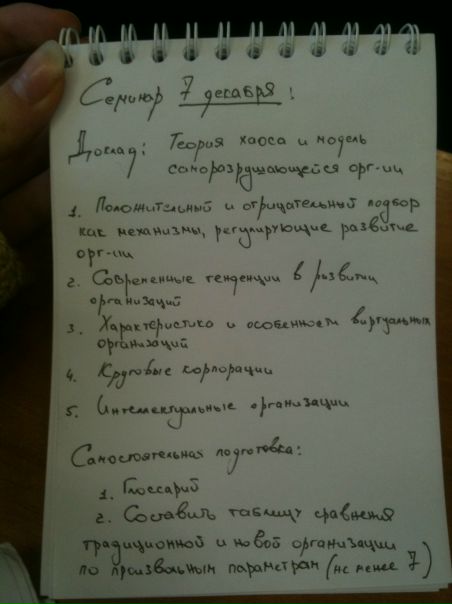 Семинар 7 декабря!
Доклад: Теория хаоса и модель
саморазрушающейся орг-ии
1. Положительный и отрицательный подбор
как механизмы, регулирующие развитие
орг-ии
2. Современные тенденции в развитии
организаций
3. Характеристика и особенности виртуальных
организаций
4. Круговые корпорации
5. Интеллектуальные организации
Самостоятельная подготовка:
1. Глоссарий
2. Составить таблицу сравнения
традиционной и новой организации
по произвольным параметрам (не менее 7)